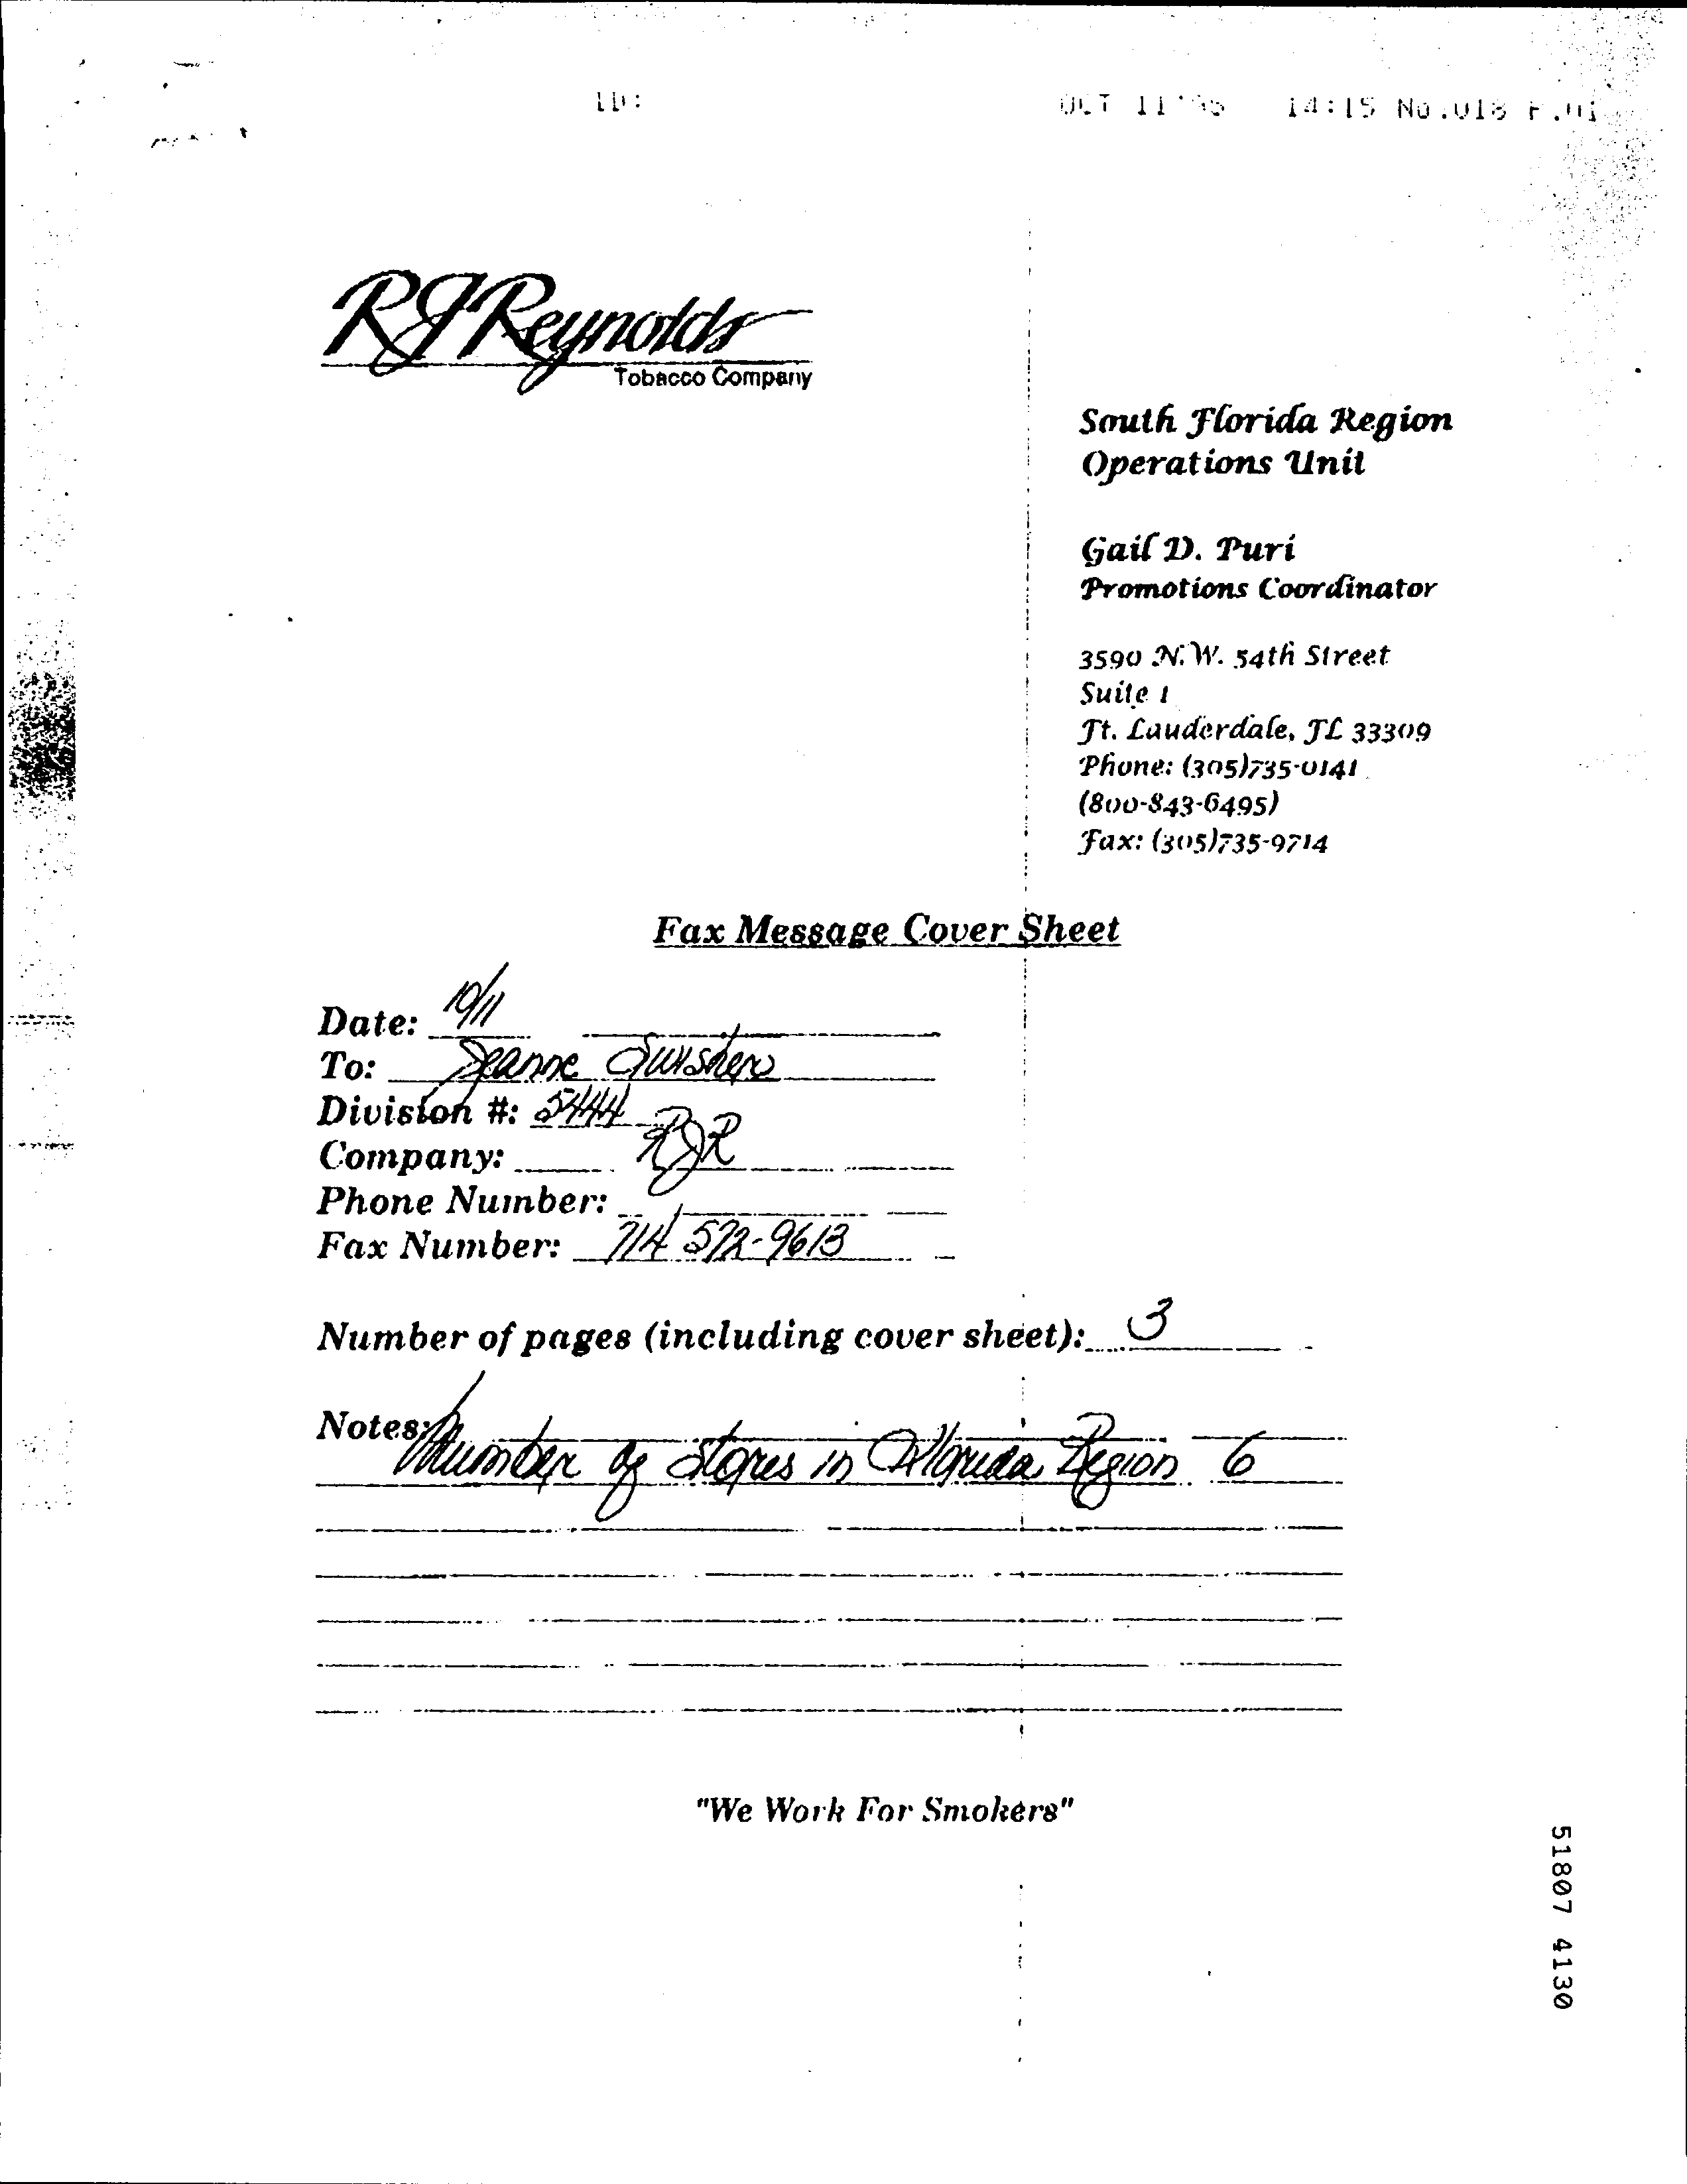 ID:
OCT 11'95 14:15 No.018 P.01
RJReynolds
Tobacco Company
South Florida Region
Operations Unit
Gail D. Puri
Promotions Coordinator
3590 N.W. 54th Street
Suite 1
Ft. Lauderdale, FL 33309
Phone: (305)735-0141
(800-843-6495)
Fax: (305)735-9714
Fax Message Cover Sheet
Date: 10/11
To: Jeanne Swisher
Division #: 5444
Company: RJR
Phone Number:
Fax Number: 714 572-9613
Number of pages (including cover sheet): 3
Notes:
Number of stores in Florida Region 6
"We Work For Smokers"
51807 4130